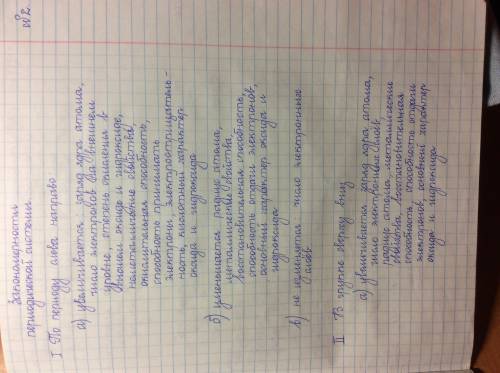 №2.
Закономерности
периодической системы
I По периоду слева направо
а) увеличивается: заряд ядра атома,
число электронов на внешнем
уровне степень окисления в
высшем оксиде и гидроксиде,
неметаллические свойства,
окислительная способность,
способность принимать
электроны, электроотрицатель-
ность, кислотный характер
оксида и гидроксида
б) уменьшается радиус атома,
металлические свойства,
восстановительная способность,
способность отдавать электронов,
основный характер оксида и
гидроксида
в) не изменяется число электронных
слоёв
II В группе сверху вниз
а) увеличивается заряд ядра атома,
число электронных слоев,
радиус атома металлические
свойства, восстановительная
способность, способность отдачи
электронов основный характер
оксида и гидроксида